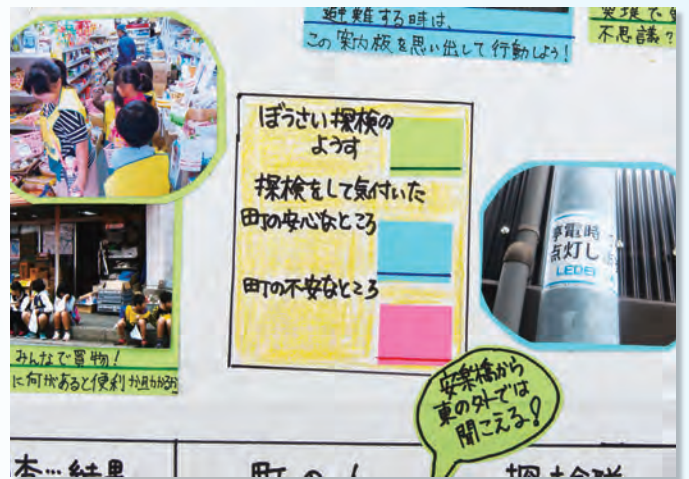 避難する時は、
この案内板を思い出して行動しよう!
不思議?
ぼうさい探検の
ようす
探検をして気付いた
町の安心なところ
町の不安なところ
停電時
点灯し
LED
みんなで買物!
に何があると便利か
安楽橋から
東の外では
聞こえる!
結果
町の